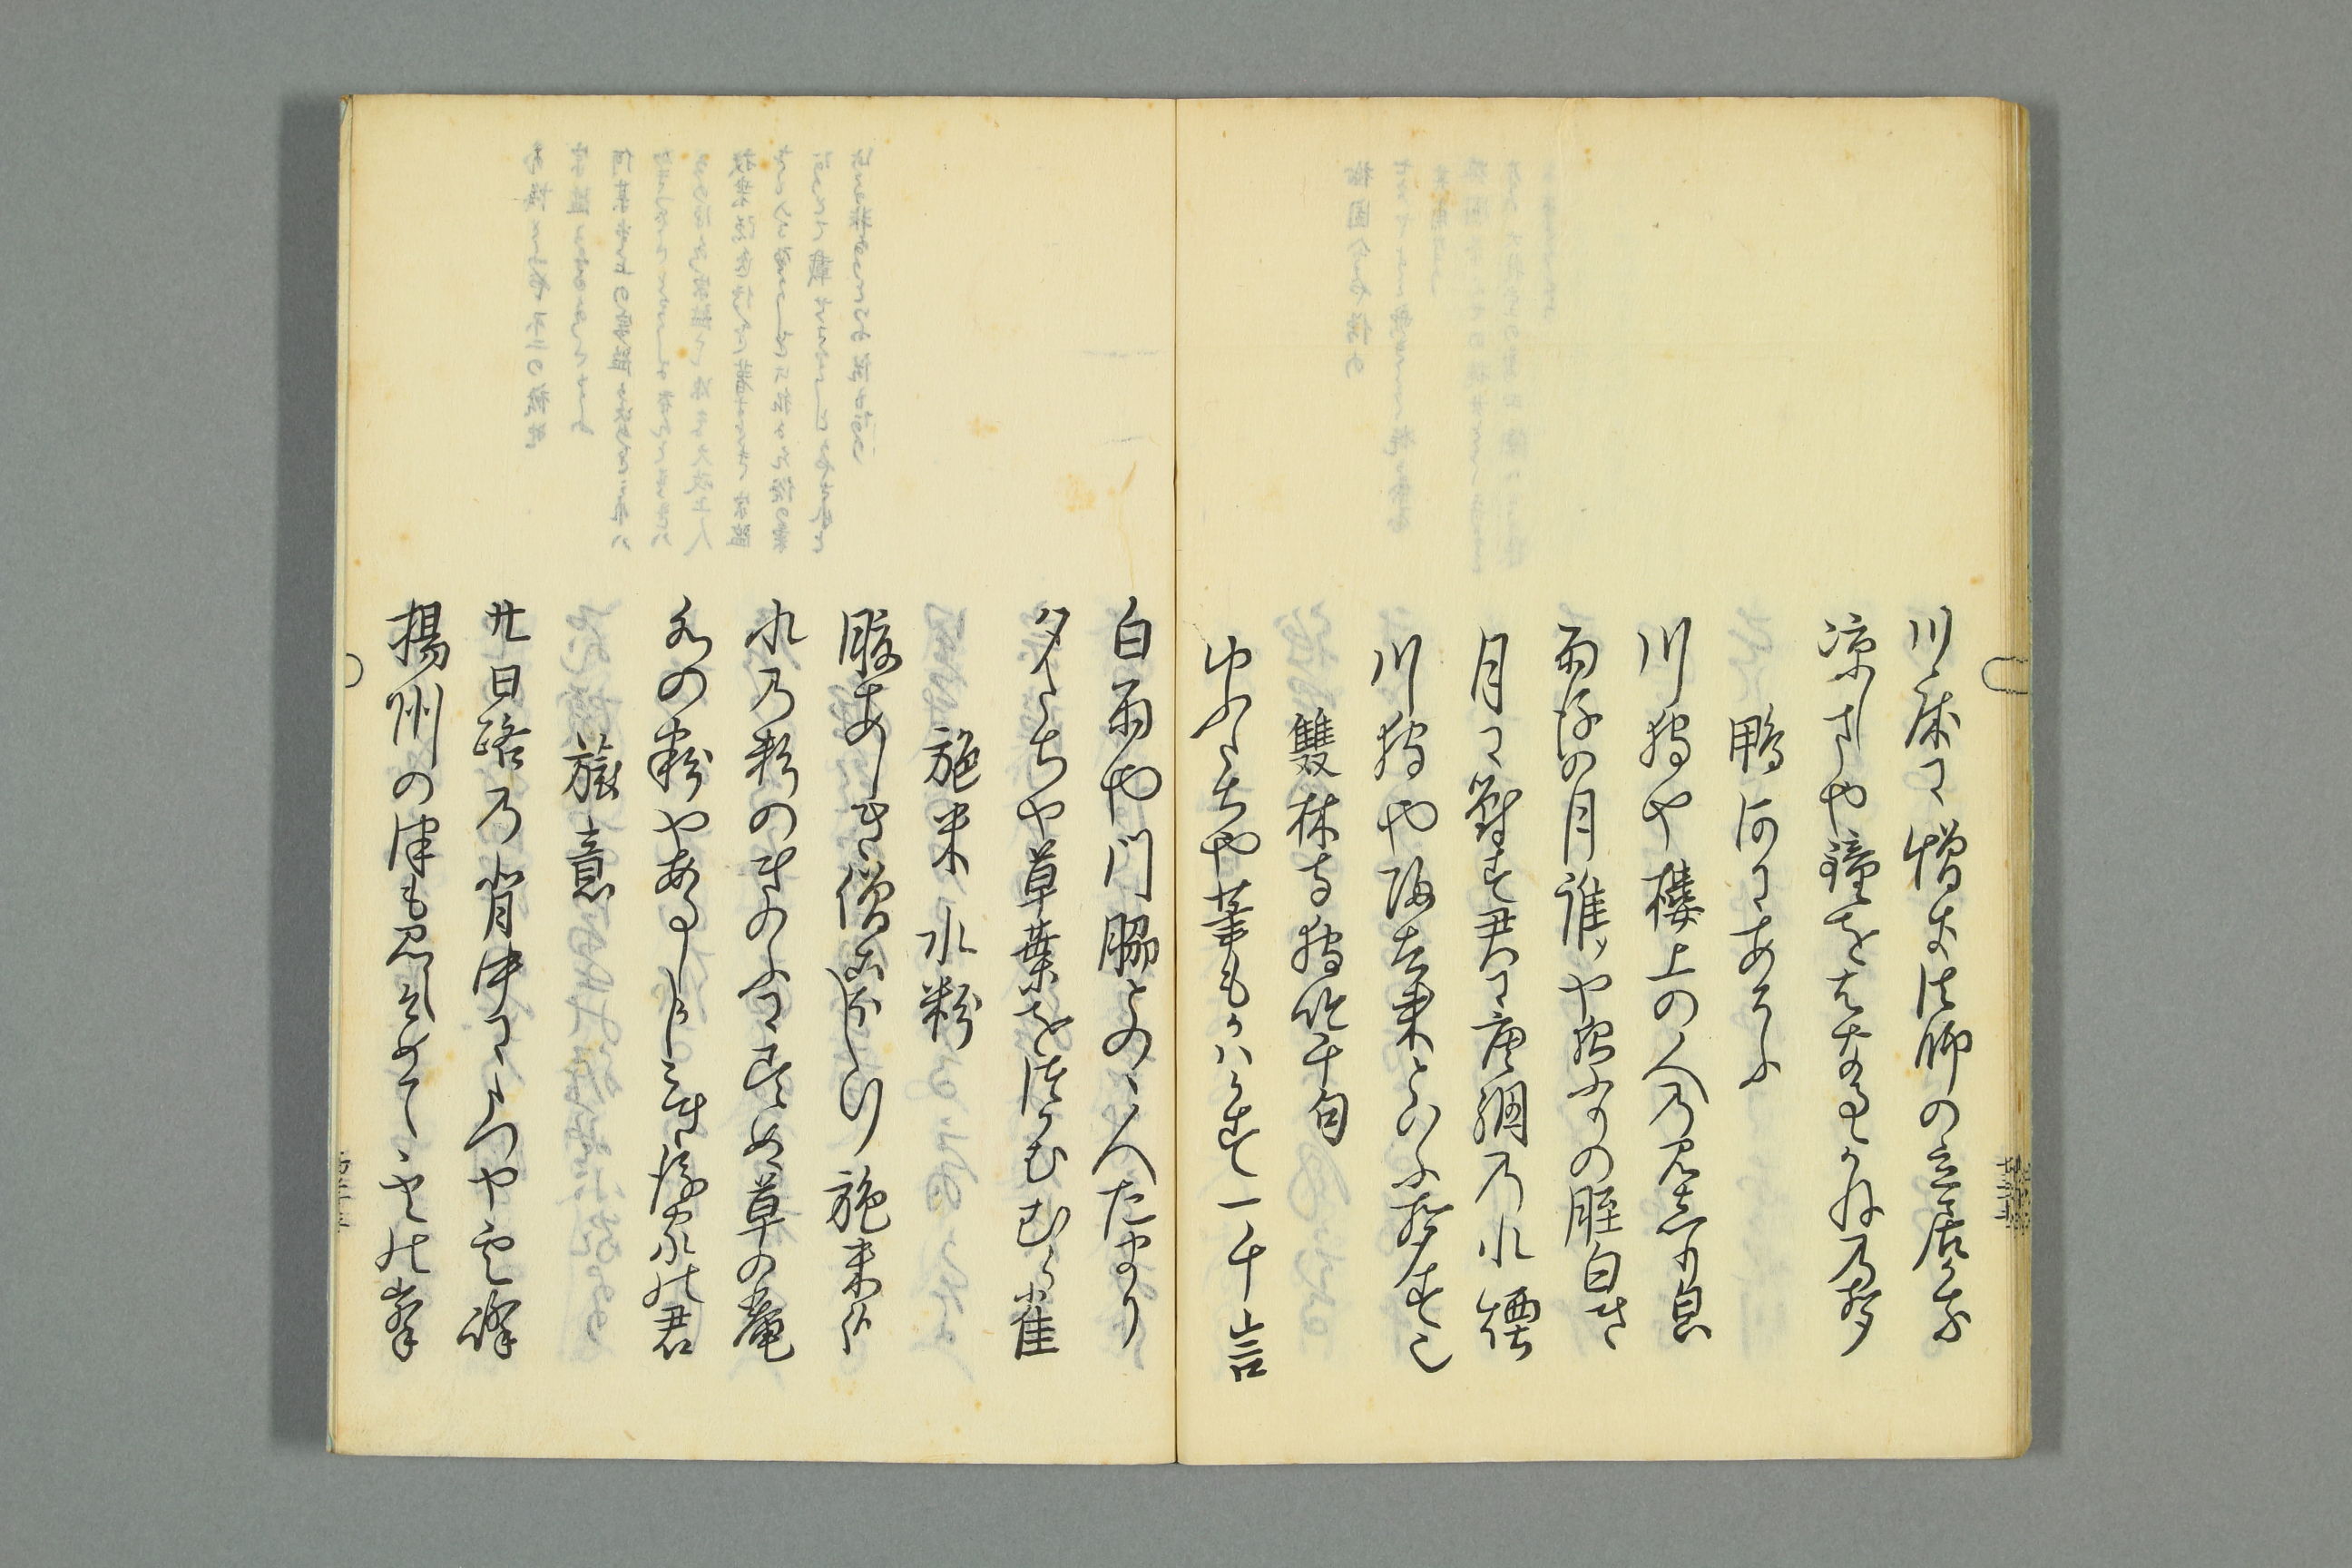 川床に憎き法師の立居かな
涼しさや鐘をはなるゝかね乃声
鴨河にあそふ
川狩や楼上の人乃見しり貌
雨後の月誰ソや夜ふりの脛白き
月に対す君に唐網乃水煙
川狩や帰去来といふ声す也
雙林寺独吟千句
ゆふたちや筆もかハかす一千言
白雨や門脇とのゝ人たまり
夕たちや草葉をつかむむら雀
施米 水粉
腹あしき僧こほし行施米哉
水乃粉のきのふに尽ぬ草の庵
水の粉やあるしかしこき後家の君
旅意
廿日路乃背中にたつや雲峰
揚州の津も見えそめて雲の峯